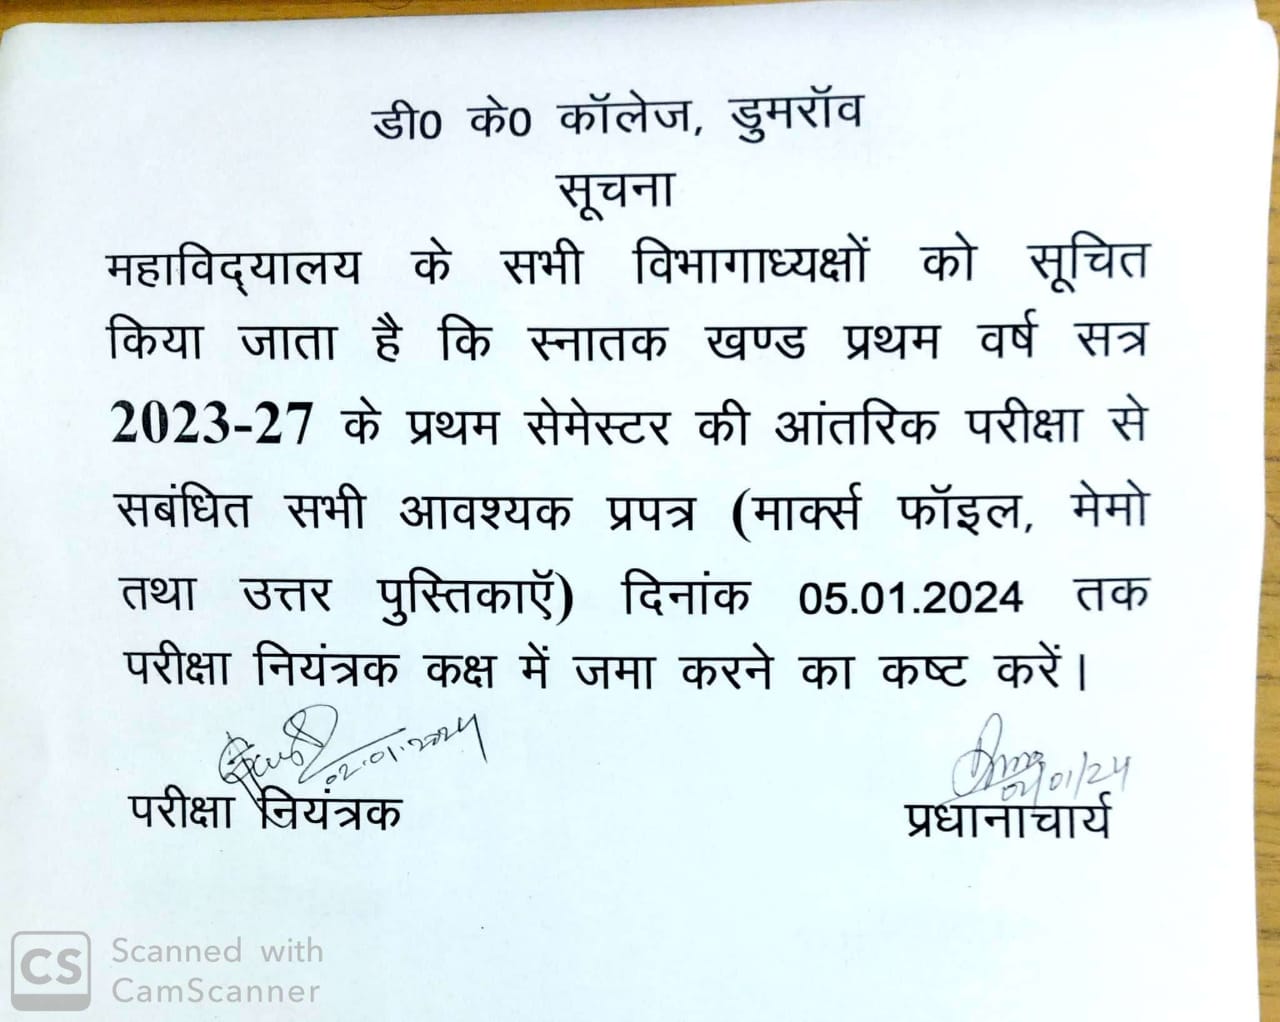 डी0 के0 कॉलेज, डुमरॉव
सूचना
महाविद्यालय के सभी विभागाध्यक्षों को सूचित
किया जाता है कि स्नातक खण्ड प्रथम वर्ष सत्र
2023-27 के प्रथम सेमेस्टर की आंतरिक परीक्षा से
सबंधित सभी आवश्यक प्रपत्र (मार्क्स फॉइल, मेमो
तथा उत्तर पुस्तिकाएॅ) दिनांक 05.01.2024 तक
परीक्षा नियंत्रक कक्ष में जमा करने का कष्ट करें।
02.01.2024
परीक्षा नियंत्रक
प्रधानाचार्य
CS Scanned with
CamScanner